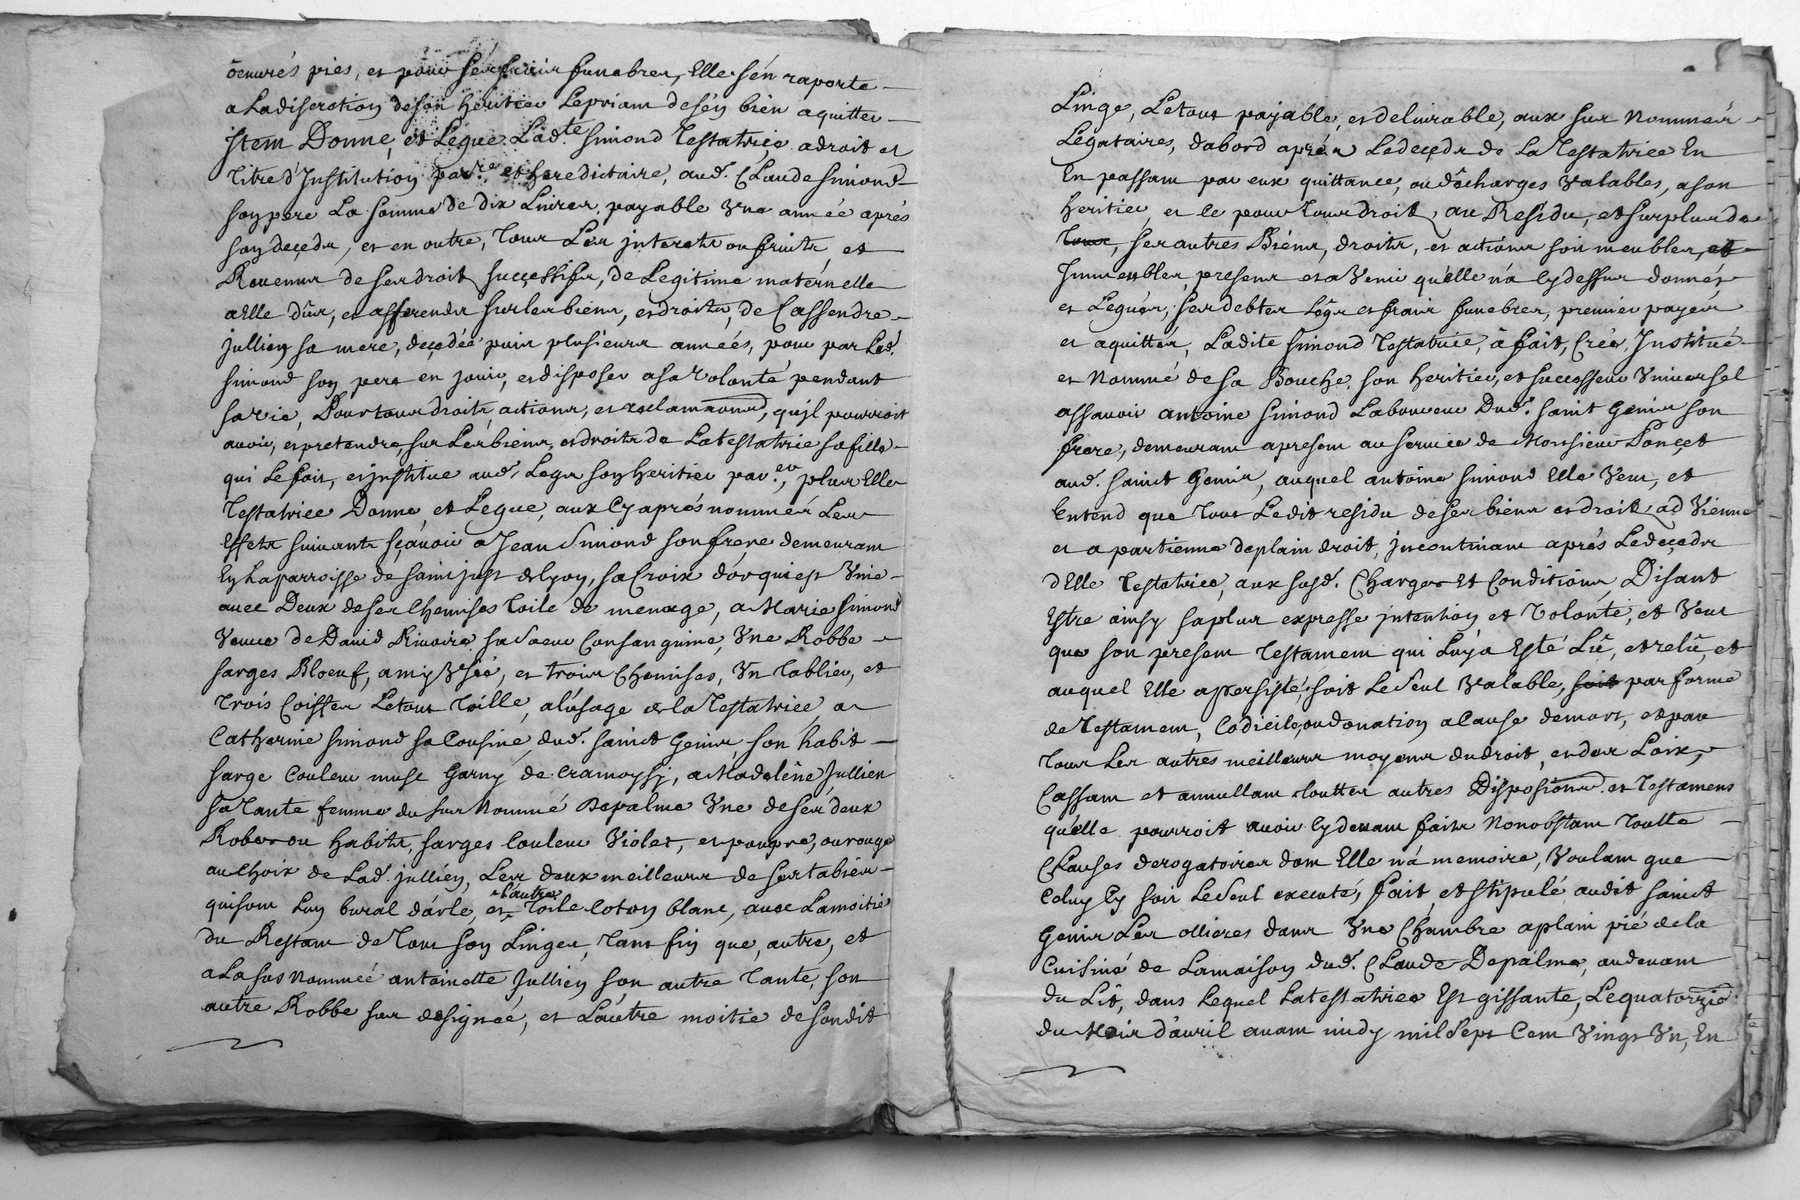 œuvrés pies, et pour ses frais funebres, Elle s'én raporte
a Ladiscretion deson heritier Lepriant desén bién aquitter
jtem Donne, et Legue Ladte. Simond Testatrice adroit et
titre d'Institution parre. et heredictaire, aud. Claude simond
son pere La somme de dix Livres, payable Une année aprés
son deçeds, et en outre, tous Les jnterets ou fruits, et
Revenus de ses droits successifs, de Legitime maternelle
aElle dûs, et afferends sur les biens, et droits, de Cassendre
jullien sa mere, deçedée puis plusieurs années, pour par Led.
simond son pere en jouir, et disposer a sa volonté pendant
sa vie, Pour tous droits, actions, et reclamaons, qu'jl pourroit
avoir, et pretendre, sur Les biens, et droits de La testatrice sa fille
qui Le fait, et jnstitue aud. Legs son heritier par.er, plus Elle
Testatrice Donne, et Legue, aux Cy aprés nommés Les
Effets suivants sçavoir a Jean Simond son frere demeurant
En La parroisse de saint just de lyon, sa Croix d'or qui est Unie
avec Deux de ses Chemises toile de menage, a Marie simond
Veuve de David Rivoire sa soeur Consanguine, Une Robbe
sarges Bloeuf, amy Usée, et trois Chemises, Un tablier, et
Trois Coiffes Le tout toille, a lusage de la Testatrice a
Catherine simond sa Cousine dud. sainct Genis, son habit
sarge Couleur muse Garny de Cramoysy, a Madelêne Jullien
sa Tante femme du sus nommé Depalme Une de ses deux
Robes ou habits, sarges Couleur Violet, et pourpre, ou rouge
au Choix de Lad. jullien, Les deux meilleurs de ses tabiers
quisont Lun bural d'arle, et l'autre Toile Coton blanc, avec La moitie
du Restant de tout son Linges, tant fin que, autre, et
a La sus nommée antoinette Jullien son autre Tante, son
autre Robbe sus designeé, et L'autre moitie de sondit
Linge, Le tout payable, et delivrable, aux sus Nommés
Legataires, dabord aprés Le deçeds de La Testatrice En
En passant par eux quittance, ou dêcharges Valables, a son
heritier, et le pour tous droits, au Residu, et surplus de
tous, ses autres Biéns, droits, et actions soit meubles, et
Jmmeubles, presens et a Venir qu'elle n'a Cydessus donnés
et Legués, ses debtes Lêgs et frais funebres, premier payés
et aquittés, Ladite simond Testatrice, â fait, Créé, Jnstitué
et Nommé de sa Bouche, son heritier, et successeur Universel
assavoir antoine simond Laboureur Dud. saint Genis son
frere, demeurant a present au service de Monsieur Ponçet
aud. sainct Genis, auquel antoine simond Elle Veut, et
Entend que tout Ledit residu de ses biens et droits, ad Vienne
et a partienne de plain droit, jncontinant aprés Le deçeds
d'Elle Testatrice, aux susd. Charges Et Conditions, Disant
Estre ainsy sa plus expresse jntention et Volonté, et Veut
que son present Testament qui Luy a Esté Lû, et relû, et
auquel Elle a persisté, soit Le seul Valable, soit par forme
de Testament, Codicile, ou donation a Cause demort, et par
tous Les autres meilleurs moyens du droit, et des Loix,
Cassant et annullant touttes autres Disposions. et Testamens
quelle pourroit avoir Cy devant faits Nonobstant toutte
Clauses derogatoires dont Elle n'a memoire, Voulant que
Celuy Cy soit Le seul executé, fait, et stipulé audit sainct
Genis Les ollieres dans Une Chambre a plain pié de la
Cuisine de La maison dud. Claude Depalme, au devant
du Lit, dans Lequel La testatrice Est gissante, Le quatorzie
du Mois d'avril avant midy mil Sept Cent Vingt Un, En